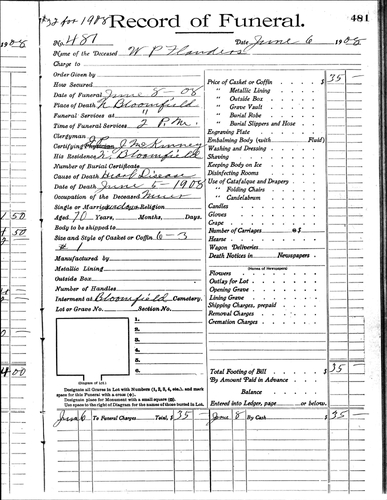 # 32 for 1908 Record of Funeral. 481
No. 481 Date June 6 1908
Name of the Deceased W P Flanders
Charge to
Order Given by
How Secured
Date of Funeral June 8 - 08
Place of Death N Bloomfield
Funeral Services at "
Time of Funeral Services 2 P.M.
Clergyman
Certifying Physician J McKinney
His Residence N. Bloomfield
Number of Burial Certificate
Cause of Death Heart Disease
Date of Death June 5 - 1908
Occupation of the Deceased Miner
Single or Married Religion
Aged 70 Years, Months, Days.
Body to be shipped to
Size and Style of Casket or Coffin 6-3
# 1
Manufactured by
Metallic Lining
Outside Box
Number of Handles
Interment at Bloomfield Cemetery.
Lot or Grave No. Section No.
1.
2.
3.
4.
5.
6.
(Diagram of lot.)
Designate all Graves in Lot with Numbers (1, 2, 3, 4, etc.), and mark
space for this Funeral with a cross (+).
Designate place for Monument with a small square (□).
Use space to the right of Diagram for the names of those buried in Lot.
Price of Casket or Coffin $ 35 —
" Metallic Lining
" Outside Box
" Grave Vault
" Burial Robe
" Burial Slippers and Hose
Engraving Plate
Embalming Body (with Fluid)
Washing and Dressing
Shaving
Keeping Body on Ice
Disinfecting Rooms
Use of Catafalque and Drapery
" Folding Chairs
" Candelabrum
Candles
Gloves
Crape
Number of Carriages @ $
Hearse
Wagon Deliveries
Death Notices in Newspapers
(Names of Newspapers)
Flowers
Outlay for Lot
Opening Grave
Lining Grave
Shipping Charges, prepaid
Removal Charges
Cremation Charges
Total Footing of Bill $ 35 —
By Amount Paid in Advance
Balance
Entered into Ledger, page or below.
June 6 To Funeral Charges Total, $ 35 — June 8 By Cash $ 35 —
1908
50
50
400